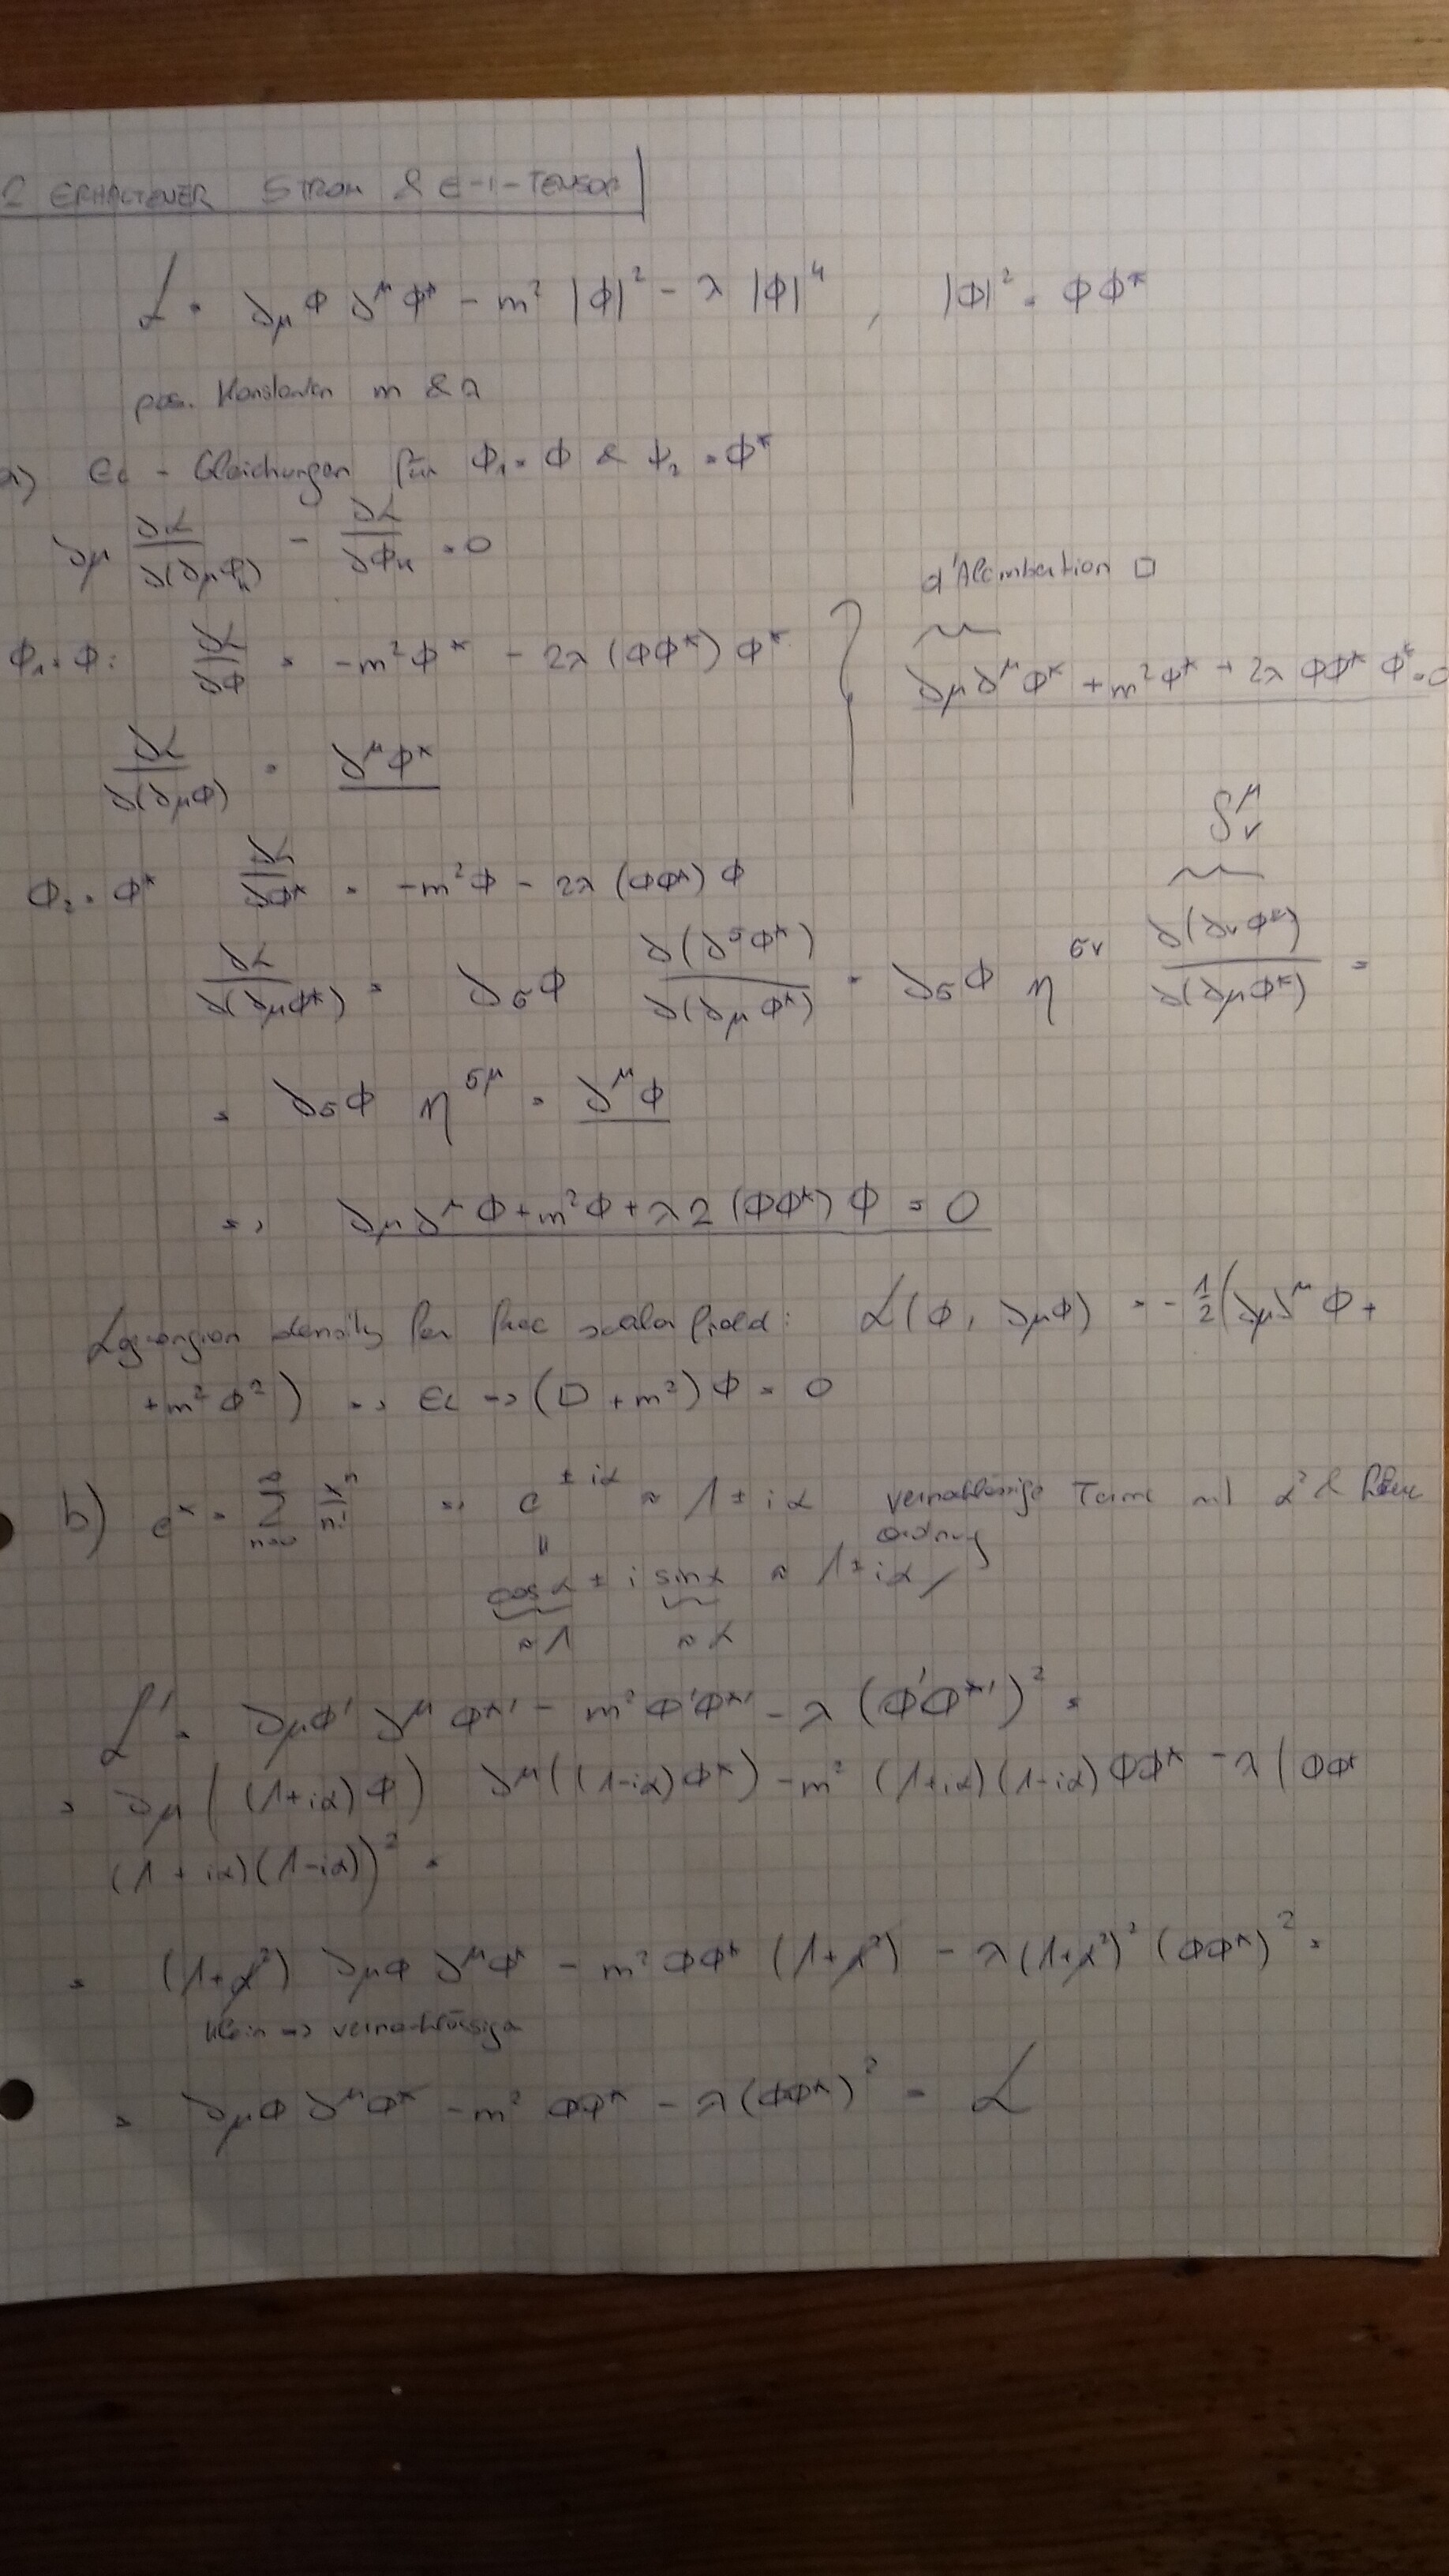 2 ERHALTENER STROM & E-I-TENSOR
ℒ = ∂_μ ϕ ∂^μ ϕ* - m² |ϕ|² - λ |ϕ|⁴ , |ϕ|² = ϕϕ*
pos. Konstanten m & λ
a) EL - Gleichungen für ϕ₁ = ϕ & ϕ₂ = ϕ*
∂_μ ∂ℒ/∂(∂_μ ϕ_k) - ∂ℒ/∂ϕ_k = 0
d'Alembertion □
ϕ₁ = ϕ: ∂ℒ/∂ϕ = -m² ϕ* - 2λ (ϕϕ*) ϕ*
∂_μ ∂^μ ϕ* + m² ϕ* + 2λ ϕϕ* ϕ* = 0
∂ℒ/∂(∂_μ ϕ) = ∂^μ ϕ*
δ^μ_ν
ϕ₂ = ϕ* ∂ℒ/∂ϕ* = -m² ϕ - 2λ (ϕϕ*) ϕ
∂ℒ/∂(∂_μ ϕ*) = ∂_σ ϕ ∂(∂^σ ϕ*)/∂(∂_μ ϕ*) = ∂_σ ϕ η^σν ∂(∂_ν ϕ*)/∂(∂_μ ϕ*) =
= ∂_σ ϕ η^σμ = ∂^μ ϕ
=> ∂_μ ∂^μ ϕ + m² ϕ + λ 2 (ϕϕ*) ϕ = 0
Lagrangian density for free scalar field: ℒ(ϕ, ∂_μ ϕ) = -1/2 (∂_μ ∂^μ ϕ +
+ m² ϕ²) => EL -> (□ + m²) ϕ = 0
b) e^x = ∑_{n=0}^∞ x^n/n! => e^{± iα} ≈ 1 ± iα vernachlässige Terme mit α² &
Ordnung
cos α ± i sin α ≈ 1 ± iα
≈ 1 ≈ α
ℒ' = ∂_μ ϕ' ∂^μ ϕ*' - m² ϕ'ϕ*' - λ (ϕ'ϕ*')² =
= ∂_μ ((1+iα) ϕ) ∂^μ ((1-iα) ϕ*) - m² (1+iα)(1-iα) ϕϕ* - λ (ϕϕ*
(1 + iα)(1-iα))² =
= (1+α²) ∂_μ ϕ ∂^μ ϕ* - m² ϕϕ* (1+α²) - λ (1+α²)² (ϕϕ*)² =
klein => vernachlässige
= ∂_μ ϕ ∂^μ ϕ* - m² ϕϕ* - λ (ϕϕ*)² = ℒ